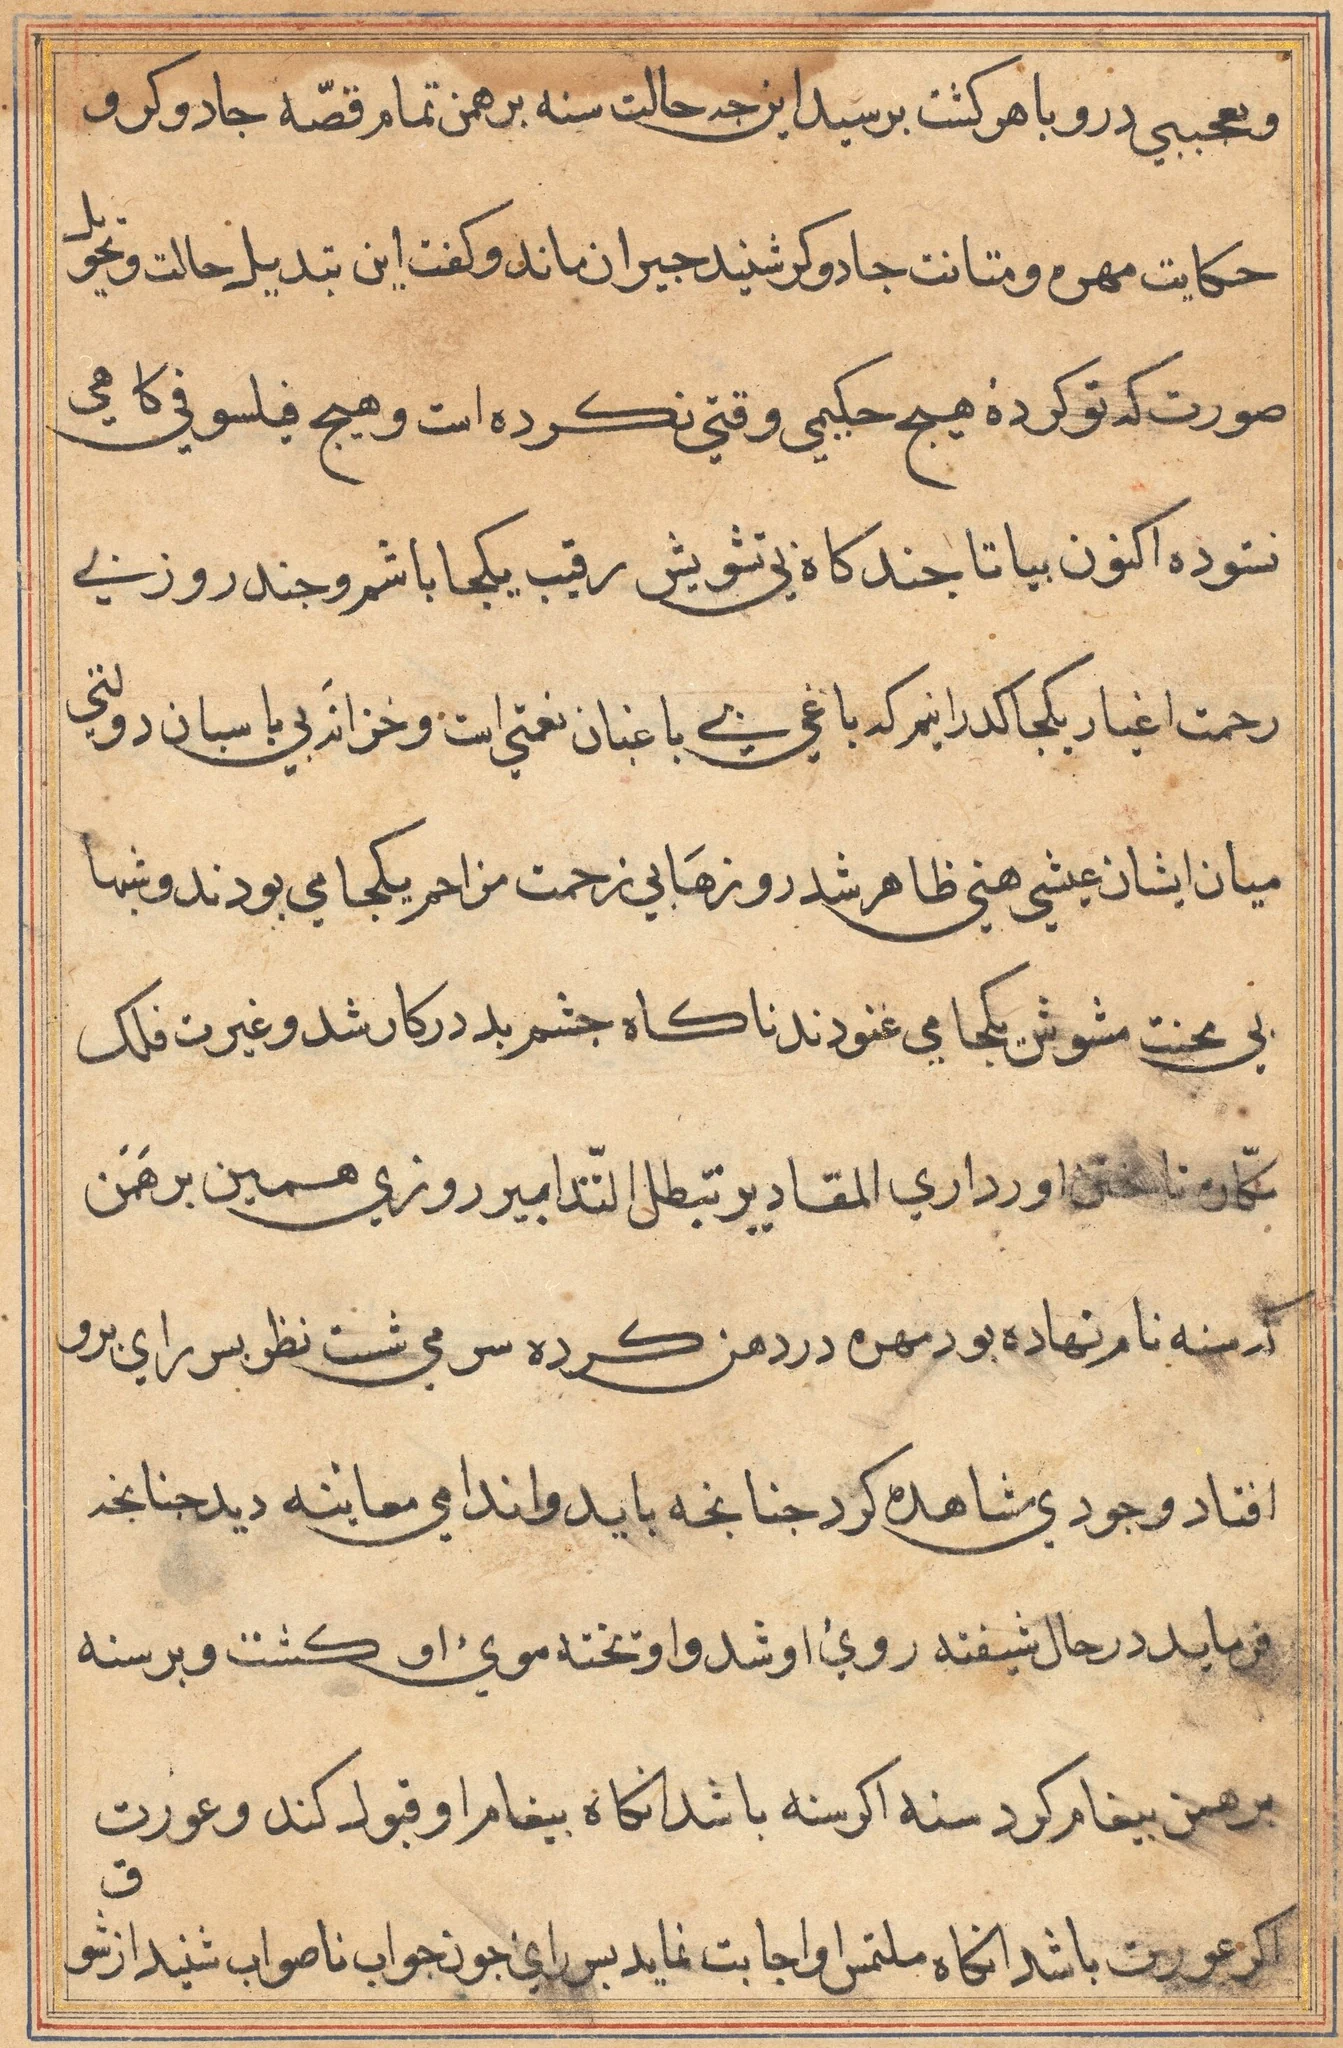 و تعجبی درو باهر کشت برسید این جه حالت سنه برهمن تمام قصّه جادوکر و
حکایت مهره و متانت جادوکر شنید حیران ماند و کفت این تبدیل حالت و تحویل
صورت که تو کردهٔ هیچ حکیمی وقتی نکرده است و هیچ فیلسوفی کاهی
نشوده اکنون بیا تا جند کاه بی تشویش رقیب یکجا باشم و جند روز بی
زحمت اغیار یکجا کذرانیم که باغی بی باغبان نعمتی است و خزانه بی باسبان دولتی
میان ایشان عیشی هنی ظاهر شد روزها بی زحمت مزاحم یکجا می بودند و شبها
بی محنت مشوش یکجا می غنودند ناکاه جشم بد در کار شد و غیرت فلک
اورد اری المقادیر تبطل التدابیر روزی همین برهمن
که سنه نام نهاده بود مهره در دهن کرده سر می شست نظر بسر رای برو
افتاد وجودی مشاهده کرد جنانجه باید و اندامی معاینه دید جنانجه
فرماید در حال شیفته رویٔ او شد و اوتخته مویٔ او کشت و بر سنه
برهمن بیغام کرد سنه اکر سنه باشد انکاه بیغام او قبول کند و عورت
اکر عورت باشد انکاه ملتمس او اجابت نماید بسر رای جون جواب ناصواب شنید از شوق